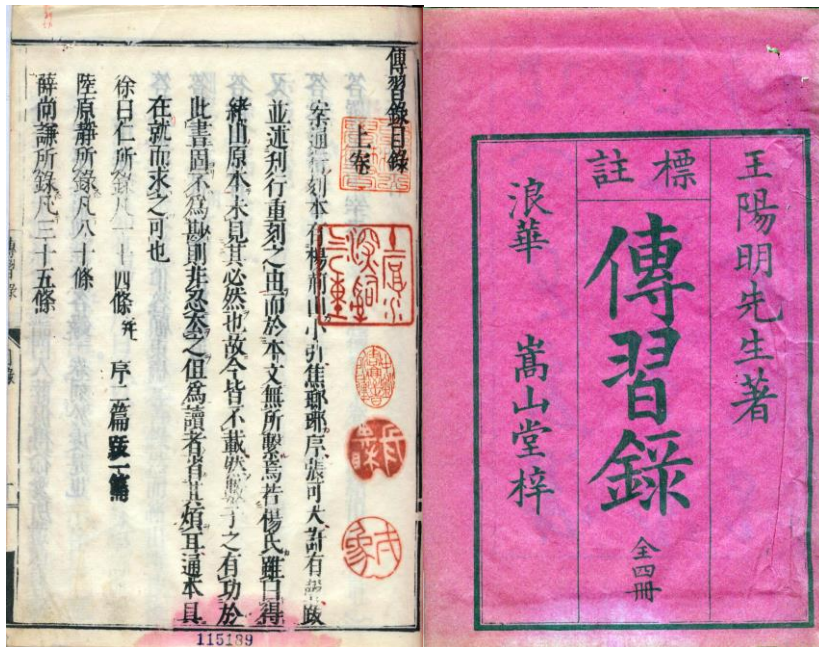 王陽明先生著
標註
傳習錄
全四冊
浪華 嵩山堂梓
傳習錄目錄
上卷
案通行刻本有楊荊山小引焦瑯琊序張可大許有聲跋
並述刊行重刻之由而於本文無所繫焉若楊氏雖曰得
緒山原本未見其必然也故今皆不載然數子之有功於
此書固不為尠則非忍之但為讀者省其煩耳通本具
在就而求之可也
徐曰仁所錄凡一十四條 并 序二篇跋一篇
陸原靜所錄凡八十條
薛尚謙所錄凡三十五條
115189